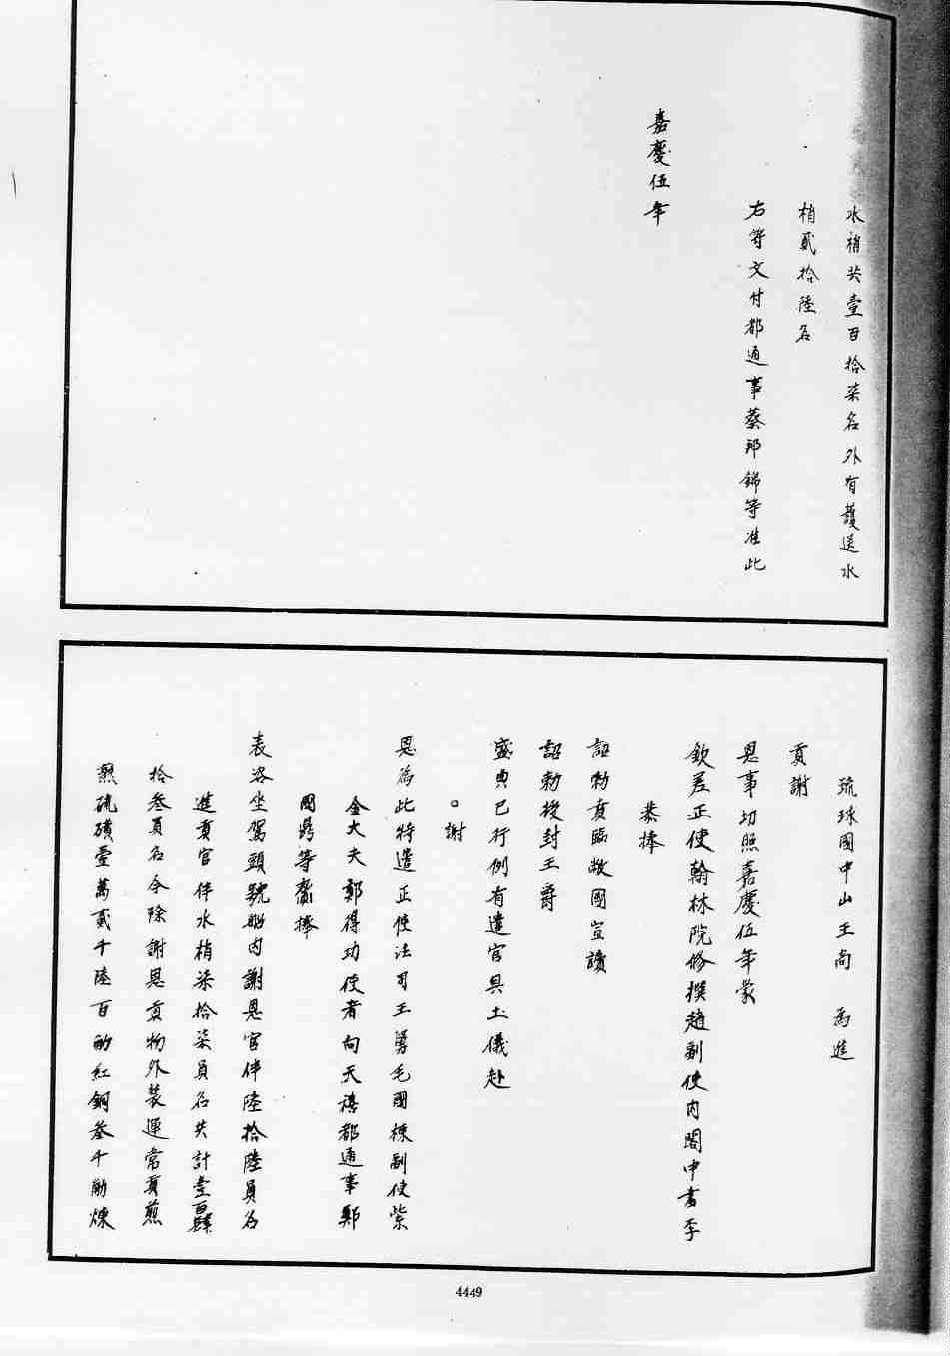 水梢共壹百拾柒名外有護送水
梢貳拾陸名
右符文付都通事蔡邦錦等准此
嘉慶伍年
琉球國中山王尚　為進
貢謝
恩事切照嘉慶伍年蒙
欽差正使翰林院修撰趙副使內閣中書李
恭捧
詔勅賁臨敝國宣讀
詔勅授封王爵
盛典已行例有遣官具土儀赴
。謝
恩為此特遣正使法司王舅毛國棟副使紫
金大夫鄭得功使者向天禧都通事鄭
國鼎等齎捧
表咨坐駕頭號船內謝恩官伴陸拾陸員名
進貢官伴水梢柒拾柒員名共計壹百肆
拾叄員名今除謝恩貢物外裝運常貢煎
熟硫磺壹萬貳千陸百觔紅銅叄千觔煉
4449